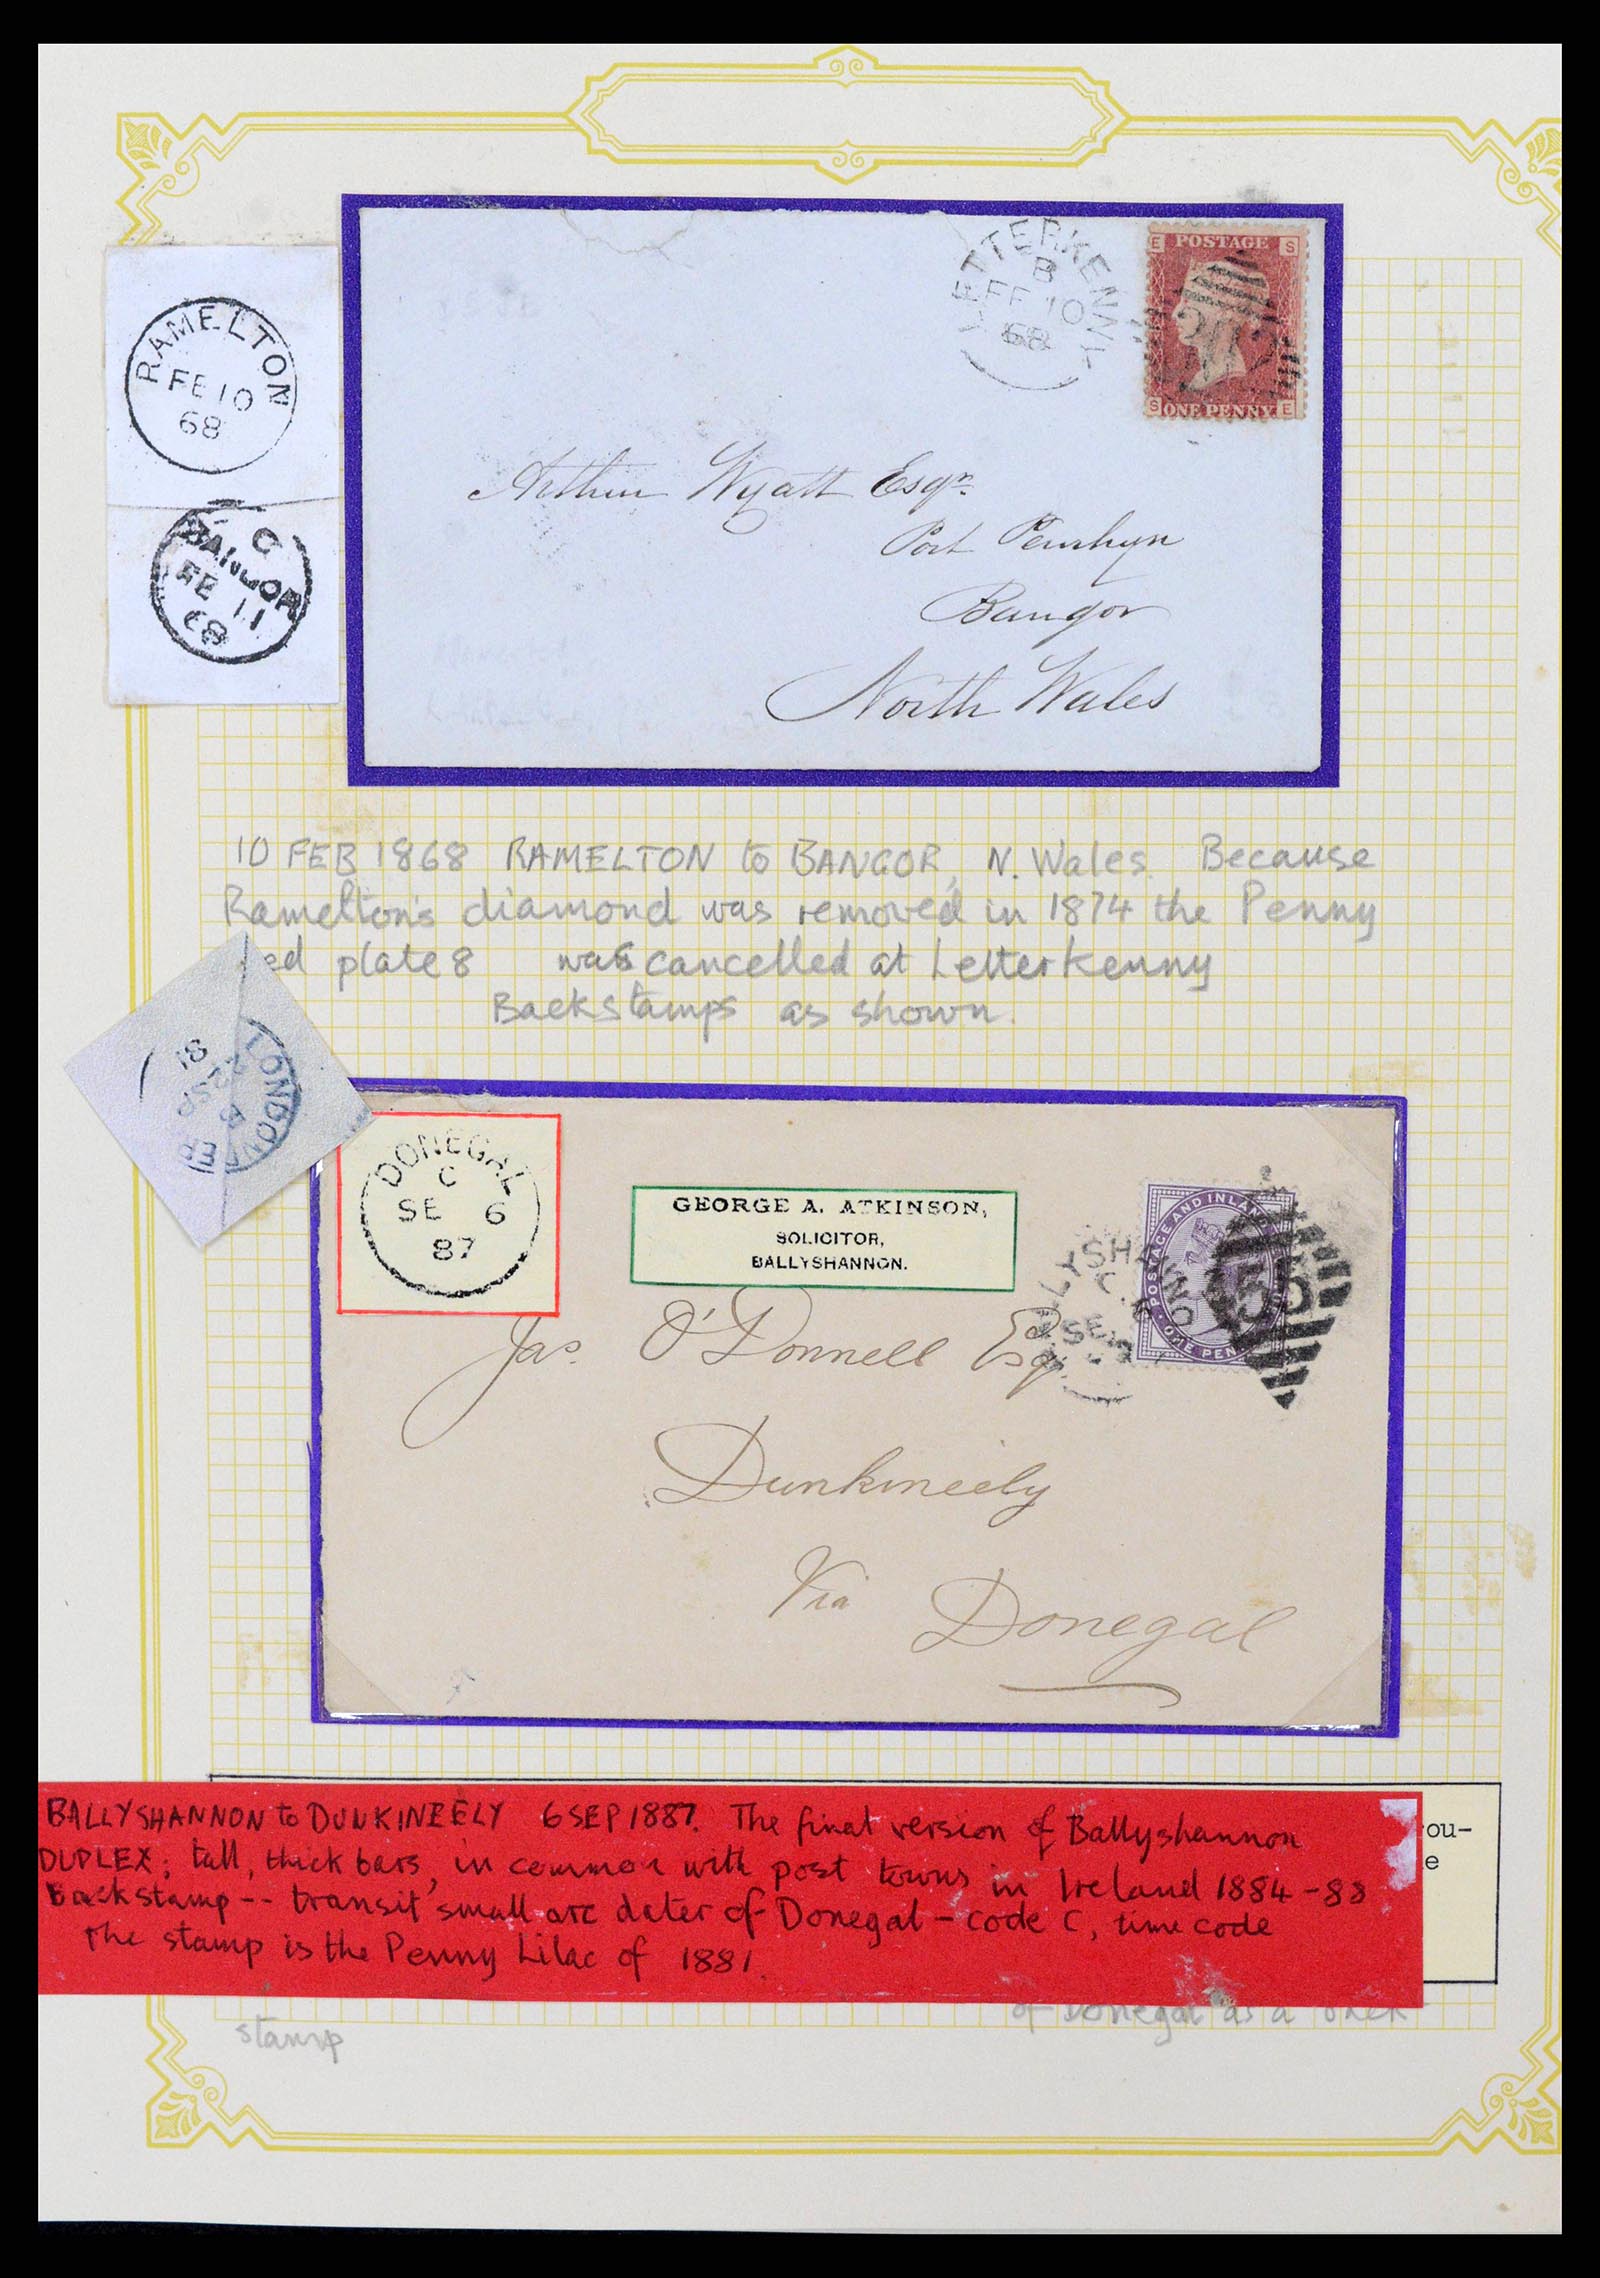 LETTERKENNY
B
FE 10
68
E POSTAGE S
S ONE PENNY E
RAMELTON
FE 10
68
C
BANGOR
FE 11
68
Arthur Wyatt Esqr.
Port Penrhyn
Bangor
North Wales
10 FEB 1868 RAMELTON to BANGOR, N. Wales. Because
Ramelton's diamond was removed in 1874 the Penny
ed plate 8 was cancelled at Letterkenny
Backstamps as shown.
LONDON ER
B
81
DONEGAL
C
SE 6
87
GEORGE A. ATKINSON,
SOLICITOR,
BALLYSHANNON.
LLYSHA NNO
C
SE
POSTAGE AND INLAND
ONE PEN
55
Jas. O'Donnell Esq.
Dunkineely
Via
Donegal
BALLYSHANNON to DUNKINEELY 6 SEP 1887. The final version of Ballyshannon
DUPLEX; tall, thick bars, in common with post towns in Ireland 1884-88
Backstamp -- transit small arc dater of Donegal - code C, time code
The stamp is the Penny Lilac of 1881.
ou-
e
of Donegal as a back-
stamp